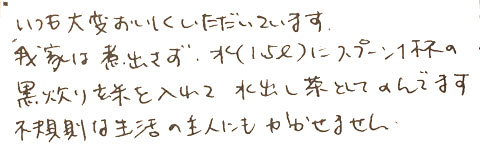 いつも大変おいしくいただいています.
我家は煮出さず. 水(1.5ℓ)にスプーン1杯の
黒炊り玄米を入れて 水出し茶としてのんでます
不規則な生活の主人にもかかせません.